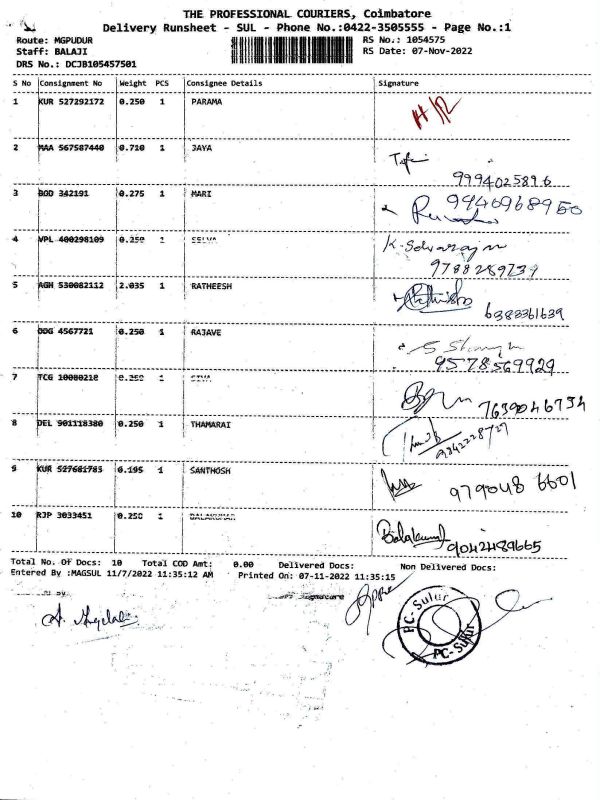 THE PROFESSIONAL COURIERS, Coimbatore
Delivery Runsheet - SUL - Phone No.:0422-3505555 - Page No.:1
Route: MGPUDUR RS No.: 1054575
Staff: BALAJI RS Date: 07-Nov-2022
DRS No.: DCJB105457501
S No Consignment No Weight PCS Consignee Details Signature
1 KUR 527292172 0.250 1 PARAMA H/R
2 MAA 567587440 0.710 1 JAYA
9994025896
3 BGD 342191 0.275 1 MARI 9946968950
4 VPL 400298109 0.250 1 SELVA K. Selvaraj
9788289739
5 AGH 530082112 2.035 1 RATHEESH
6383361639
6 ODG 4567721 0.250 1 RAJAVE
9578569929
7 TCG 10080218 0.250 1 SIVA
7639046734
8 DEL 901118380 0.250 1 THAMARAI
9242228727
9 KUR 527681783 0.195 1 SANTHOSH
979048 6601
10 RJP 3033451 0.250 1 BALAKUMAR
Balakumar 9042489665
Total No. Of Docs: 10 Total COD Amt: 0.00 Delivered Docs: Non Delivered Docs:
Entered By :MAGSUL 11/7/2022 11:35:12 AM Printed On: 07-11-2022 11:35:15
By Signature
PC-Sulur
PC-Sulur